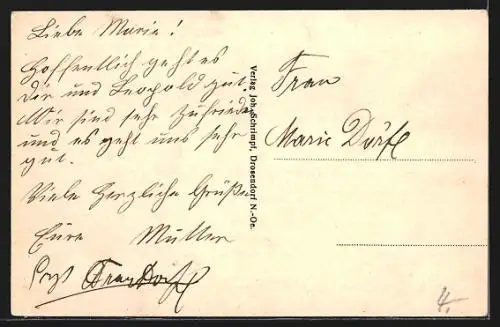 Liebe Marie!
Hoffentlich geht es
dir und Leopold gut.
Wir sind sehr zufrieden
und es geht uns sehr
gut.
Viele herzliche Grüße
Eure Mutter
Frau Dörfl
Verlag Joh. Schrimpf, Drosendorf N.-Oe.
Frau
Marie Dörfl
4.